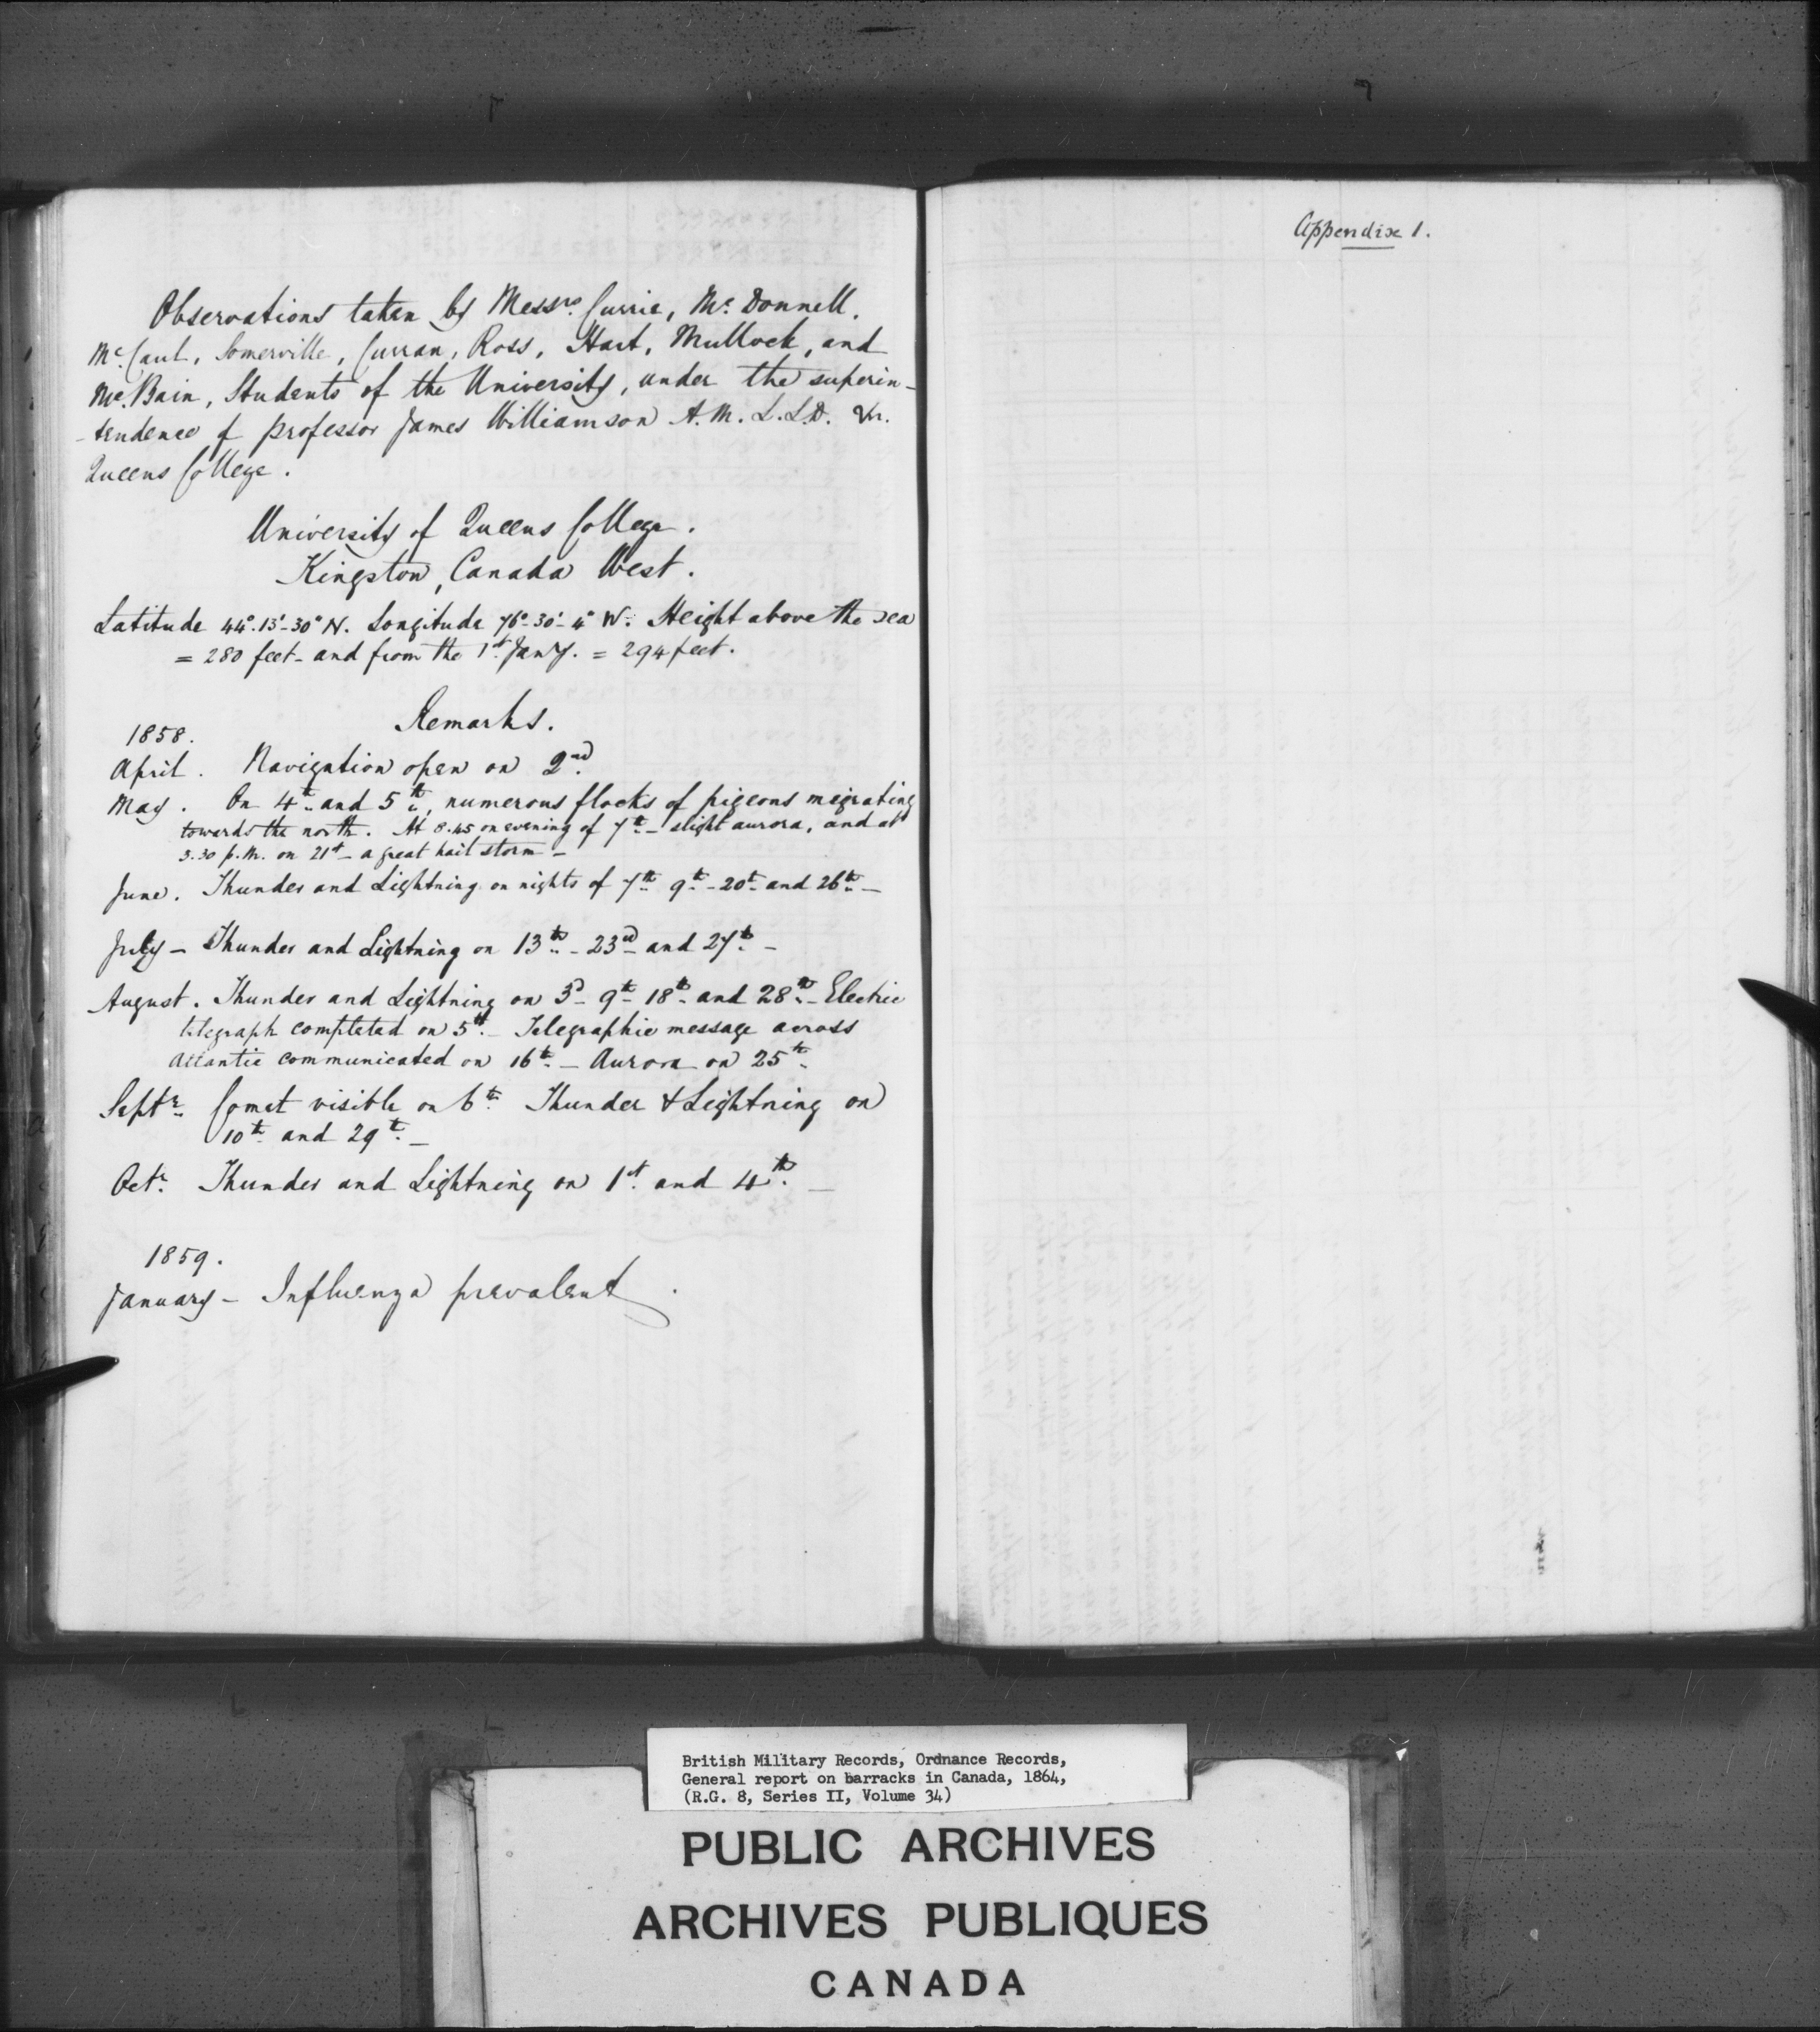 Observations taken by Messrs. Currie, Mc. Donnell.
Mc. Caul, Somerville, Curran, Ross, Hart, Mullock, and
Mc. Bain, Students of the University, under the superin-
-tendence of professor James Williamson A.M. L.L.D. &c.
Queens College.
University of Queens College.
Kingston, Canada West.
Latitude 44°.13'-30" N. Longitude 76°-30'-4" W. Height above the sea
= 280 feet - and from the 1st. Jany. = 294 feet.
Remarks.
1858.
April. Navigation open on 2nd.
May. On 4th. and 5th., numerous flocks of pigeons migrating
towards the north. At 8.45 on evening of 7th - slight aurora, and at
3.30 p.m. on 21st - a great hail storm -
June. Thunder and Lightning on nights of 7th. 9th. - 20th. and 26th. -
July - Thunder and Lightning on 13th. - 23rd and 27th. -
August. Thunder and Lightning on 3d - 9th - 18th. and 28th. - Electric
telegraph completed on 5th. - Telegraphic message across
Atlantic communicated on 16th. - Aurora on 25th.
Septr. Comet visible on 6th. Thunder & Lightning on
10th. and 29th. -
Octr. Thunder and Lightning on 1st. and 4th. -
1859.
January - Influenza prevalent.
Appendix 1.
British Military Records, Ordnance Records,
General report on barracks in Canada, 1864,
(R.G. 8, Series II, Volume 34)
PUBLIC ARCHIVES
ARCHIVES PUBLIQUES
CANADA